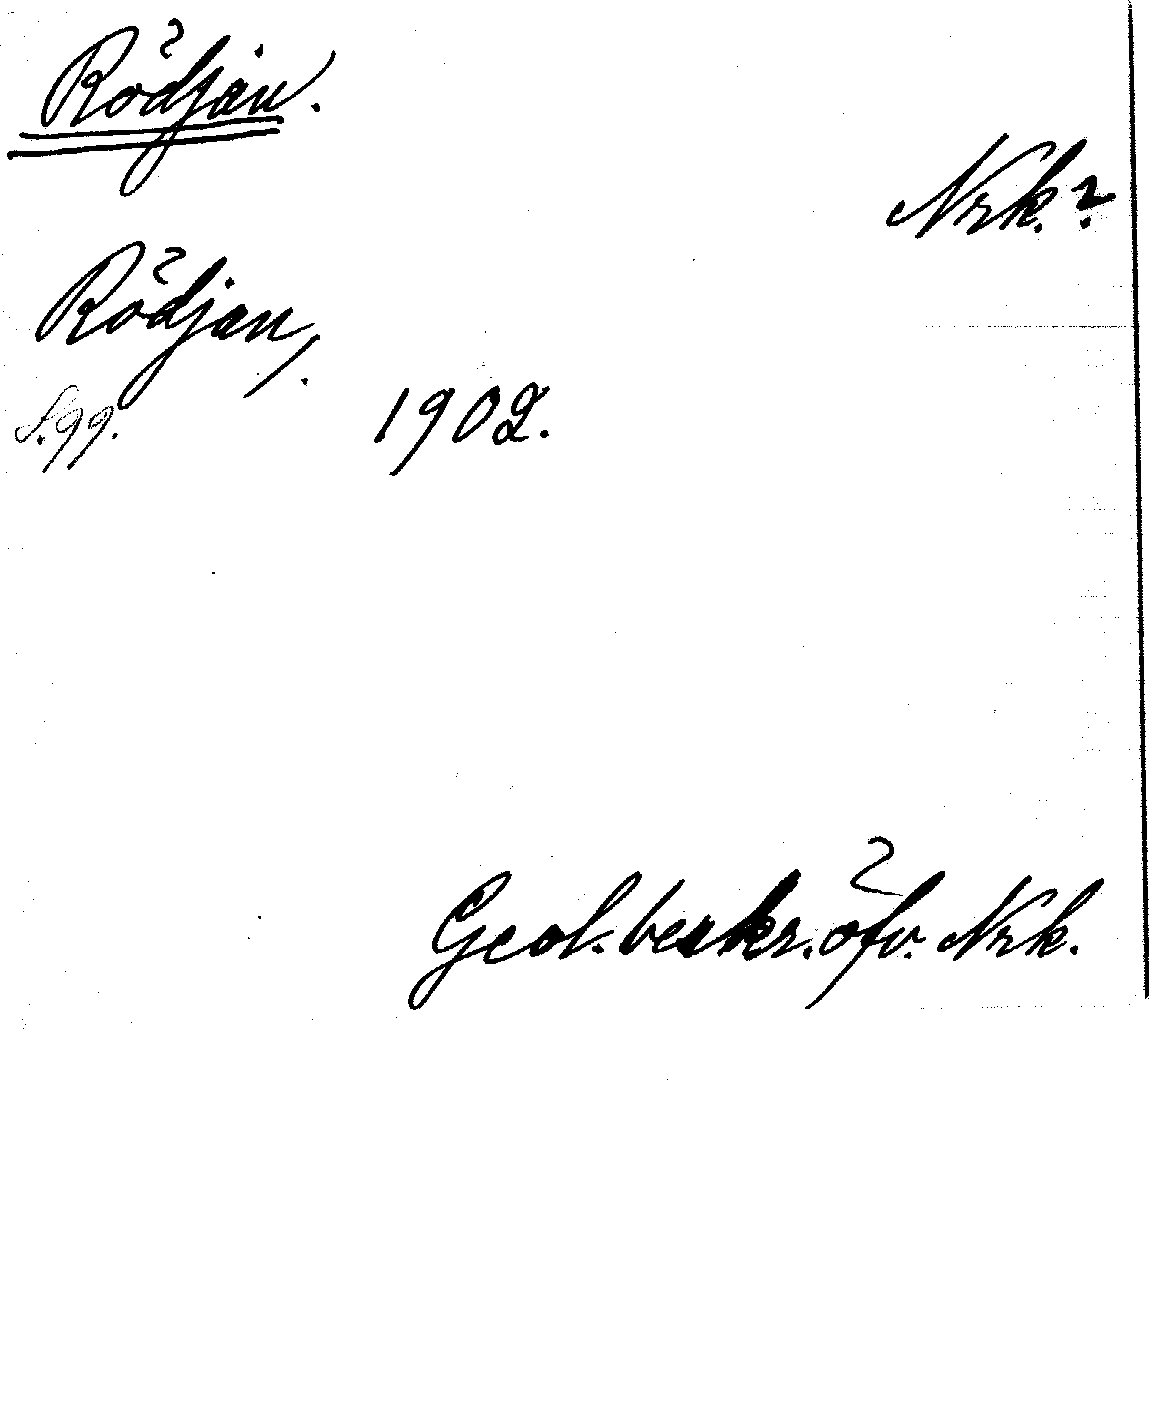 Rödjan.
Nrk.?
Rödjan,
S. 99. 1902.
Geol. beskr. öfv. Nrk.